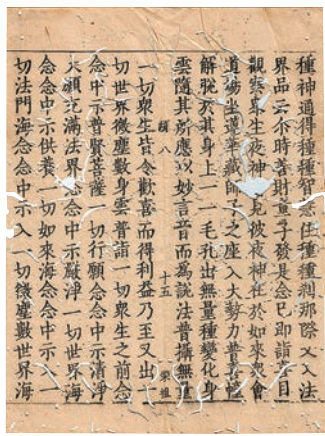 種神通得種種智 念住種種刹那際又入法
界品云尒時善財童子發是念已即詣 目
觀察衆生夜神 見彼夜神在於如來衆會
道場坐蓮華藏師子之座入大勢力普喜幢
解脫於其身上一一毛孔出無量種變化身
雲隨其所應以妙言音而爲說法普攝無量
一切衆生皆令歡喜而得利益乃至又出一
顯八 十五
切世界微塵數身雲普詣一切衆生之前念
念中示普賢菩薩一切行願念念中示清淨
大願充滿法界念念中示嚴淨一切世界海
念念中示供養一切如來海念念中示入一
切法門海念念中示入一切微塵數世界海